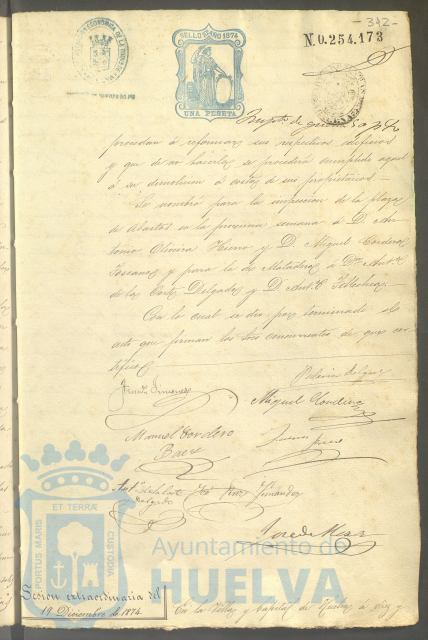 - 342 -
SELLO 11º AÑO 1874
N. 0.254.173
UNA PESETA
procedan á reformar sus respectivos edificios
y que de no hacerlo se procederá cumplido aquel
á su demolicion á costa de sus propietarios.
Se nombró para la inspeccion de la plaza
de Abastos en la procsima semana á D. An-
tonio Oliveira Hierro y D. Miguel Cordero
Toscano y para la de Matadero á Dn. Antº
de la Corte Delgado y D. Antº
Con lo cual se dió por terminado el
acto que firman los Sres concurrentes de que cer-
tifico
Jimenez
Miguel Cordero
Manuel Cordero
Baez
Antº de la Corte
Delgado
Fernandez
José de
PORTUS MARIS
ET TERRÆ
CUSTODIA
Ayuntamiento de
HUELVA
Sesion extraordinaria del
19 Diciembre de 1874.
En la Villa y Capital de Huelva á diez y